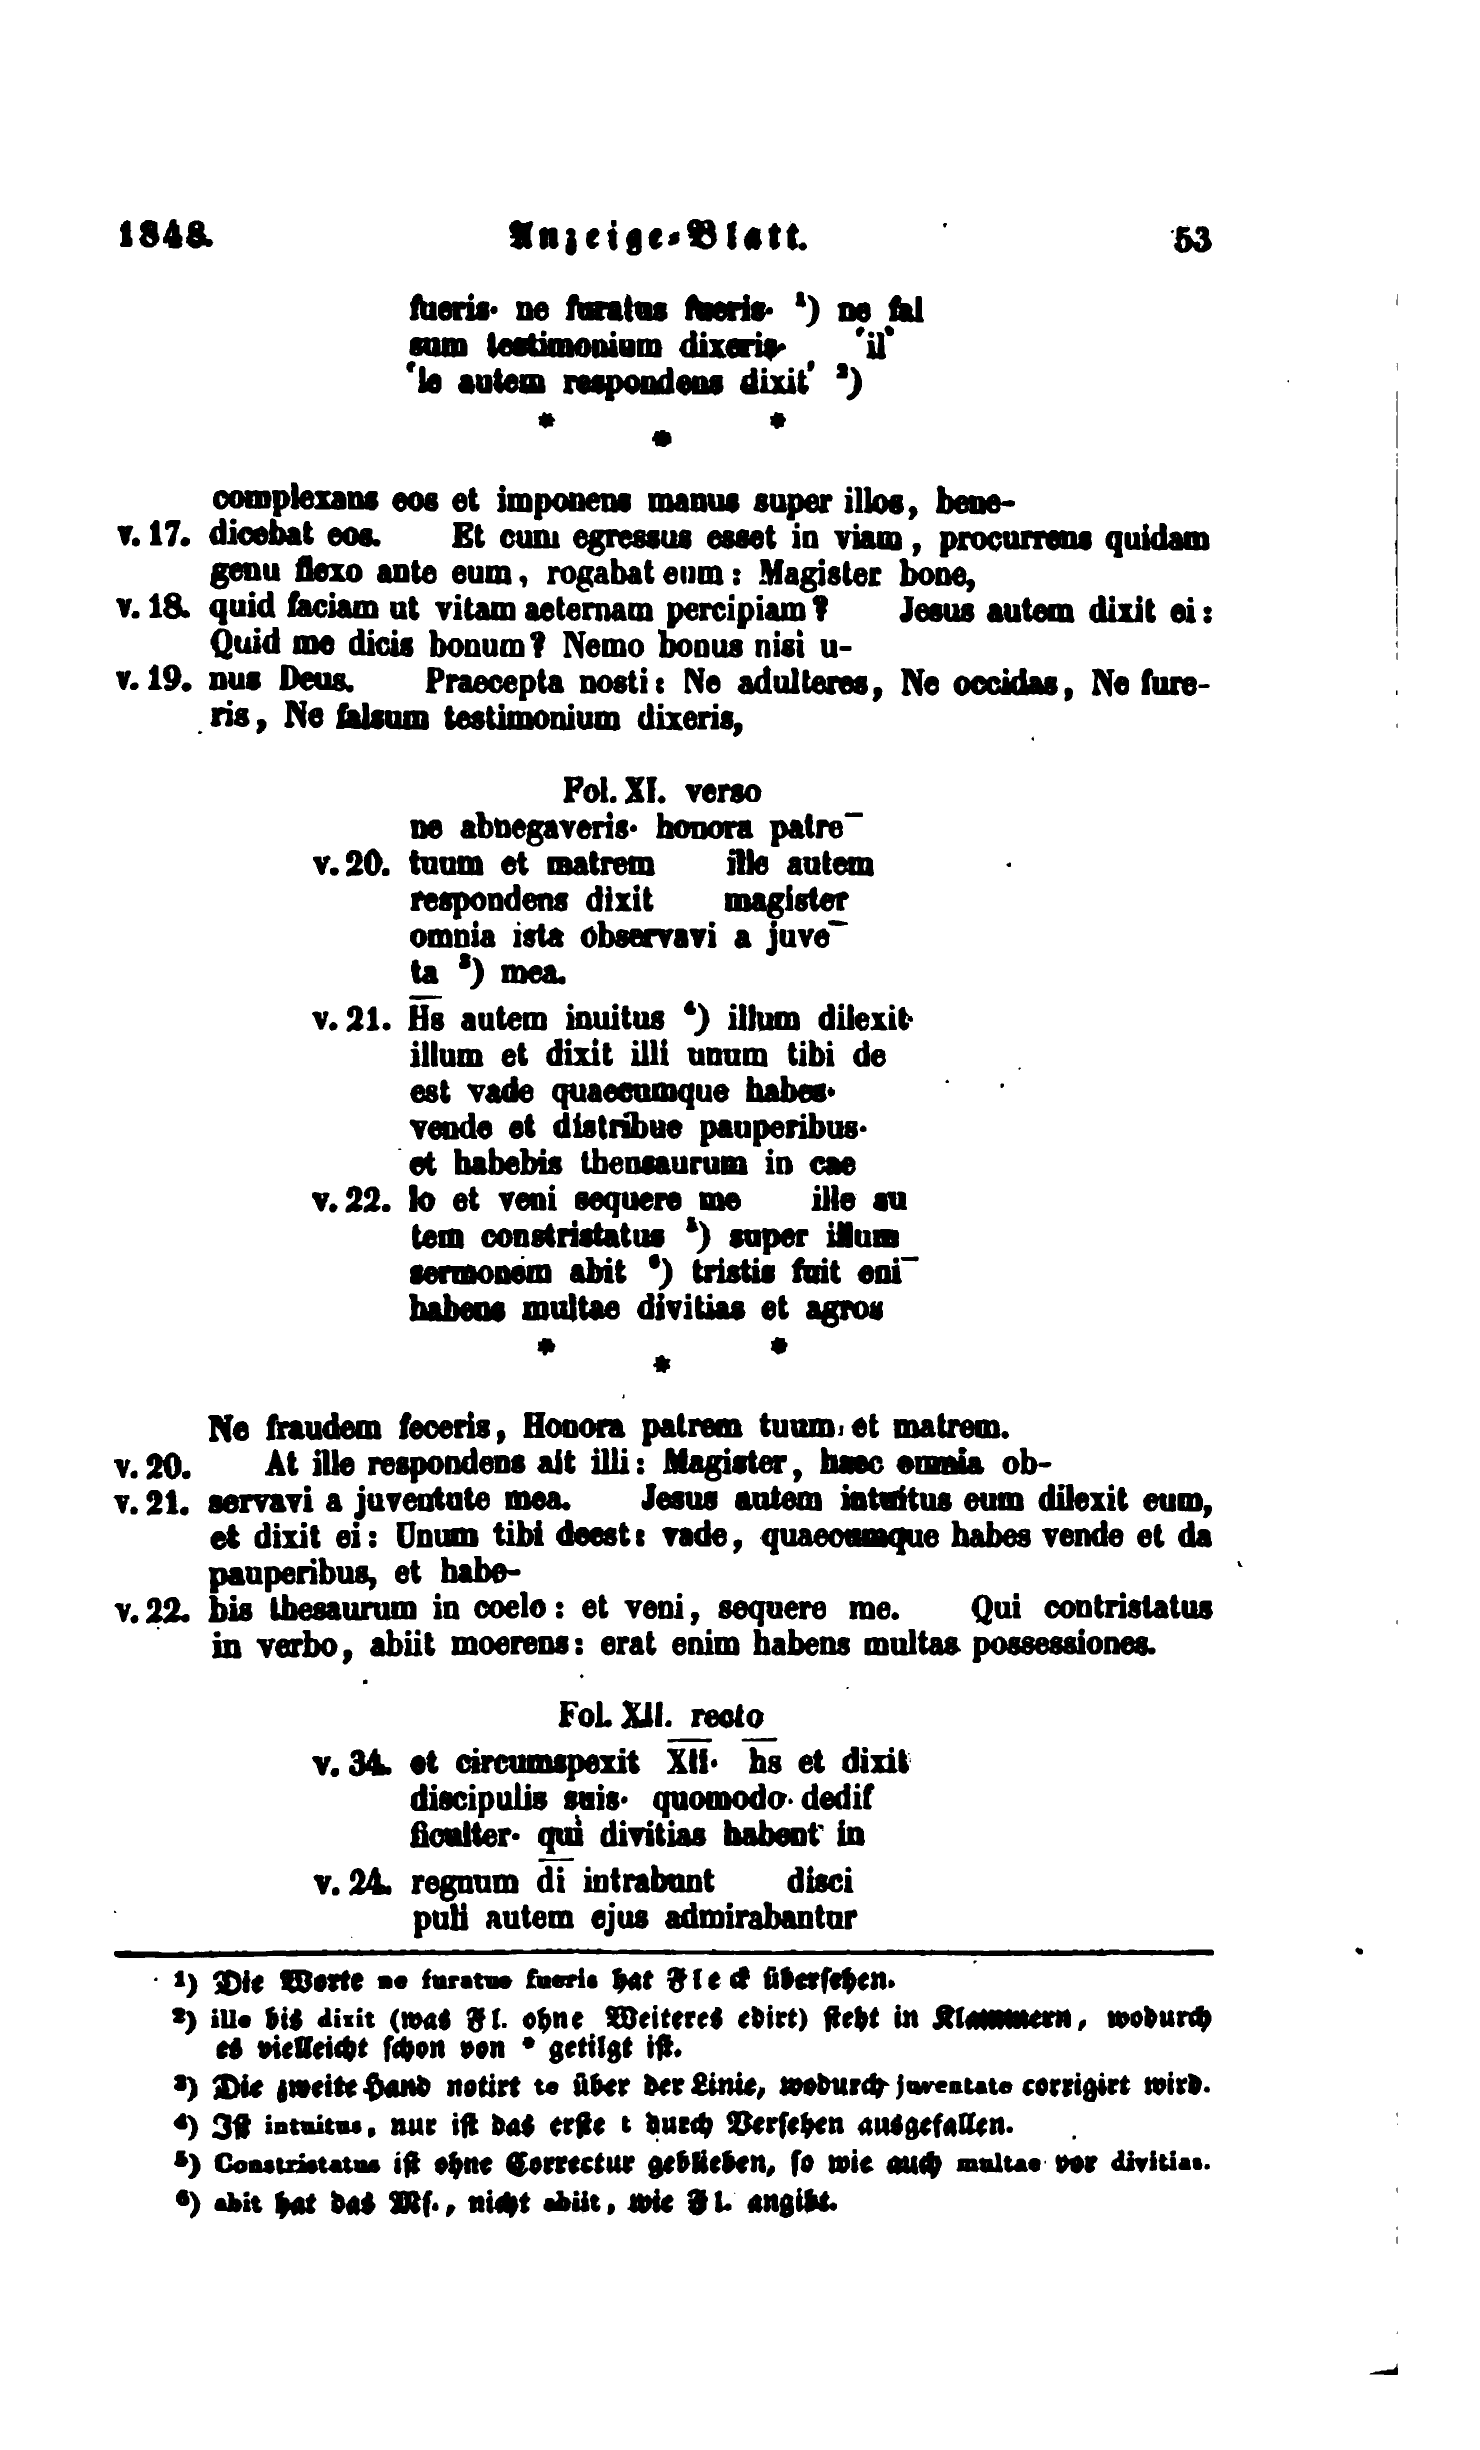 1848. Anzeige-Blatt. 53
fueris· ne furatus fueris· ¹) ne fal
sum testimonium dixeris· 'il'
'le autem respondens dixit' ²)
* * *
complexans eos et imponens manus super illos, bene-
v. 17. dicebat eos. Et cum egressus esset in viam, procurrens quidam
genu flexo ante eum, rogabat eum: Magister bone,
v. 18. quid faciam ut vitam aeternam percipiam? Jesus autem dixit ei:
Quid me dicis bonum? Nemo bonus nisi u-
v. 19. nus Deus. Praecepta nosti: Ne adulteres, Ne occidas, Ne fure-
ris, Ne falsum testimonium dixeris,
Fol. XI. verso
ne abnegaveris· honora patre¯
v. 20. tuum et matrem ille autem
respondens dixit magister
omnia ista observavi a juve¯
ta ³) mea.
v. 21. H̅s̅ autem inuitus ⁴) illum dilexit·
illum et dixit illi unum tibi de
est vade quaecumque habes·
vende et distribue pauperibus·
et habebis thensaurum in cae
v. 22. lo et veni sequere me ille au
tem constristatus ⁵) super illum
sermonem abit ⁶) tristis fuit eni¯
habens multae divitias et agros
* * *
Ne fraudem feceris, Honora patrem tuum et matrem.
v. 20. At ille respondens ait illi: Magister, haec omnia ob-
v. 21. servavi a juventute mea. Jesus autem intuitus eum dilexit eum,
et dixit ei: Unum tibi deest: vade, quaecumque habes vende et da
pauperibus, et habe-
v. 22. bis thesaurum in coelo: et veni, sequere me. Qui contristatus
in verbo, abiit moerens: erat enim habens multas possessiones.
Fol. XII. recto
v. 34. et circumspexit X̅I̅I̅· h̅s̅ et dixit
discipulis suis· quomodo· dedif
ficulter· qui divitias habent in
v. 24. regnum d̅i̅ intrabunt disci
puli autem ejus admirabantur
¹) Die Worte ne furatus fueris hat Fleck übersehen.
²) ille bis dixit (was Fl. ohne Weiteres edirt) steht in Klammern, wodurch
es vielleicht schon von * getilgt ist.
³) Die zweite Hand notirt te über der Linie, wodurch juventate corrigirt wird.
⁴) Ist intuitus, nur ist das erste t durch Versehen ausgefallen.
⁵) Constristatus ist ohne Correctur geblieben, so wie auch multae vor divitias.
⁶) abit hat das Ms., nicht abiit, wie Fl. angibt.